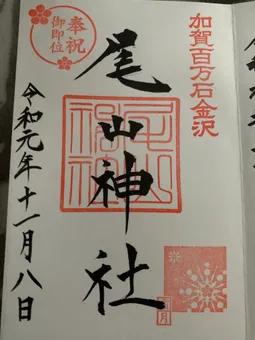 加賀百万石金沢
尾山神社
奉祝
御即位
令和元年十一月八日